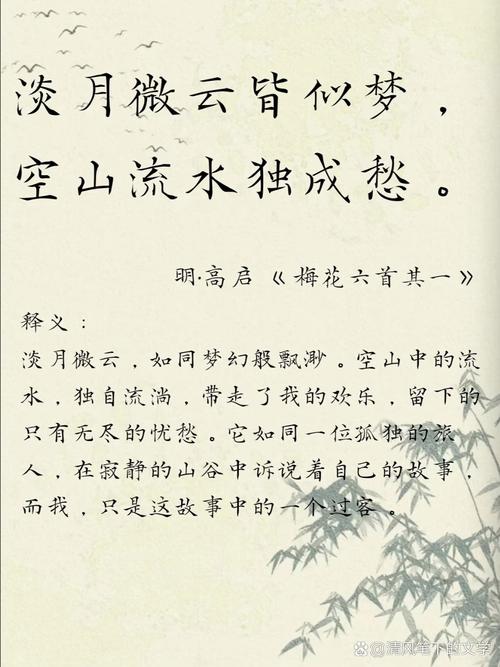 淡月微云皆似梦，
空山流水独成愁。
明·高启《梅花六首其一》
释义：
淡月微云，如同梦幻般飘渺。空山中的流
水，独自流淌，带走了我的欢乐，留下的
只有无尽的忧愁。它如同一位孤独的旅
人，在寂静的山谷中诉说着自己的故事，
而我，只是这故事中的一个过客。
@清风笔下的文学